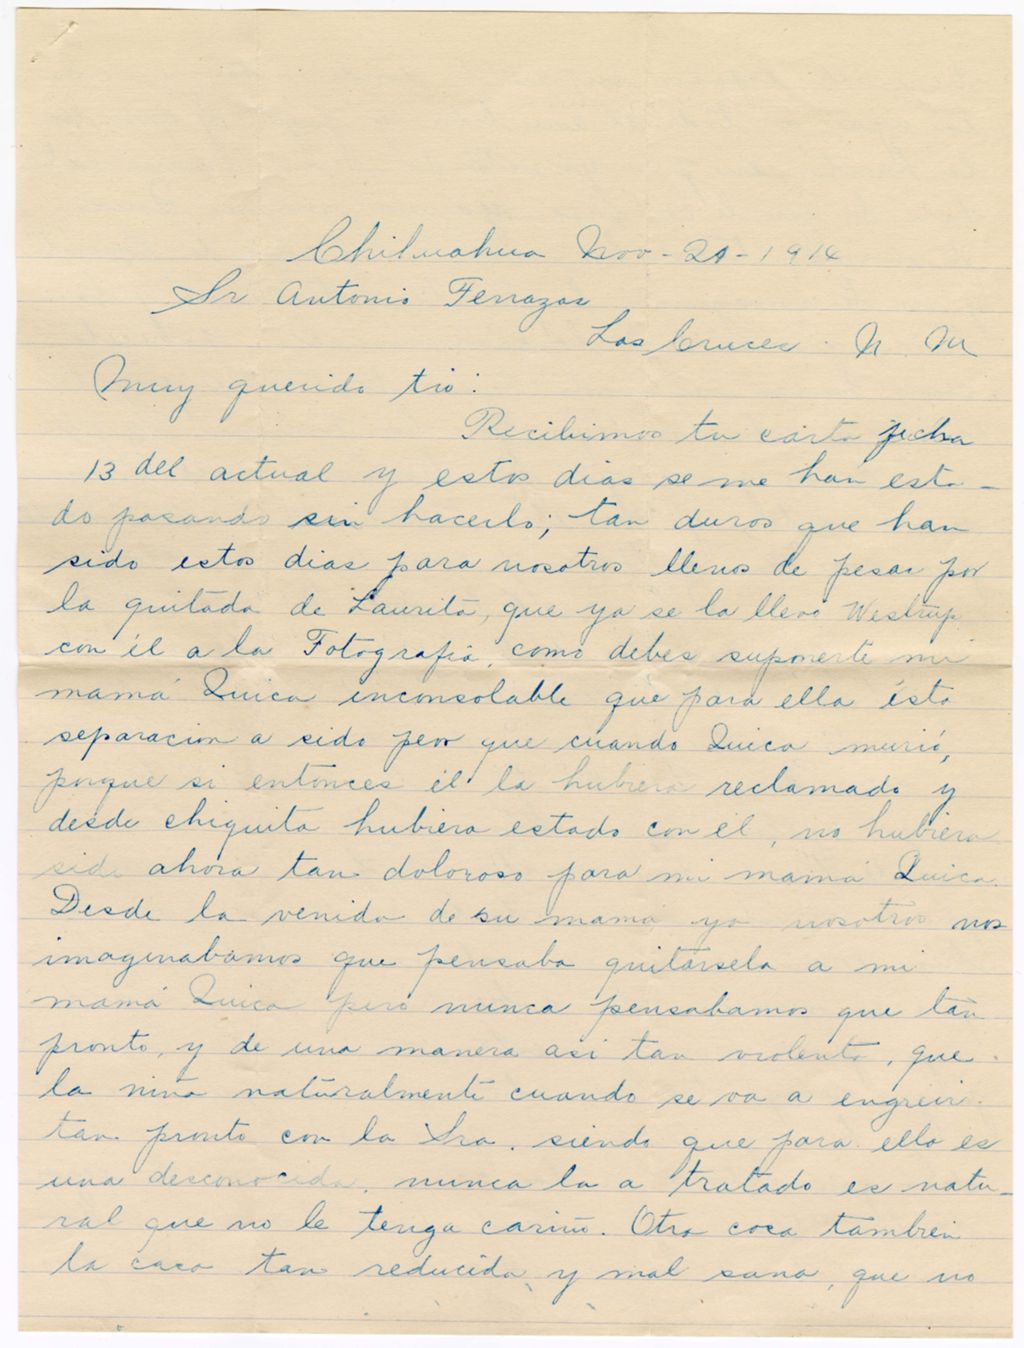 Chihuahua Nov - 20 - 1914
Sr Antonio Terrazas
Las Cruces. N. M
Muy querido tio:
Recibimos tu carta fecha
13 del actual y estos dias se me han esta-
do pasando sin hacerlo; tan duros que han
sido estos dias para nosotros llenos de pesar por
la quitada de Laurita, que ya se la llevó Westrup
con él a la Fotografia, como debes suponerte mi
mamá Quica inconsolable que para ella ésta
separacion a sido peor que cuando Quica murió,
porque si entonces él la hubiera reclamado y
desde chiquita hubiera estado con él, no hubiera
sido ahora tan doloroso para mi mamá Quica.
Desde la venida de su mamá ya nosotros nos
imaginabamos que pensaba quitársela a mi
mamá Quica pero nunca pensabamos que tan
pronto, y de una manera asi tan violenta, que
la niña naturalmente cuando se va a engreir
tan pronto con la Sra. siendo que para ella es
una desconocida, nunca la a tratado es natu-
ral que no le tenga cariño. Otra coca tambien
la casa tan reducida y mal sana, que no